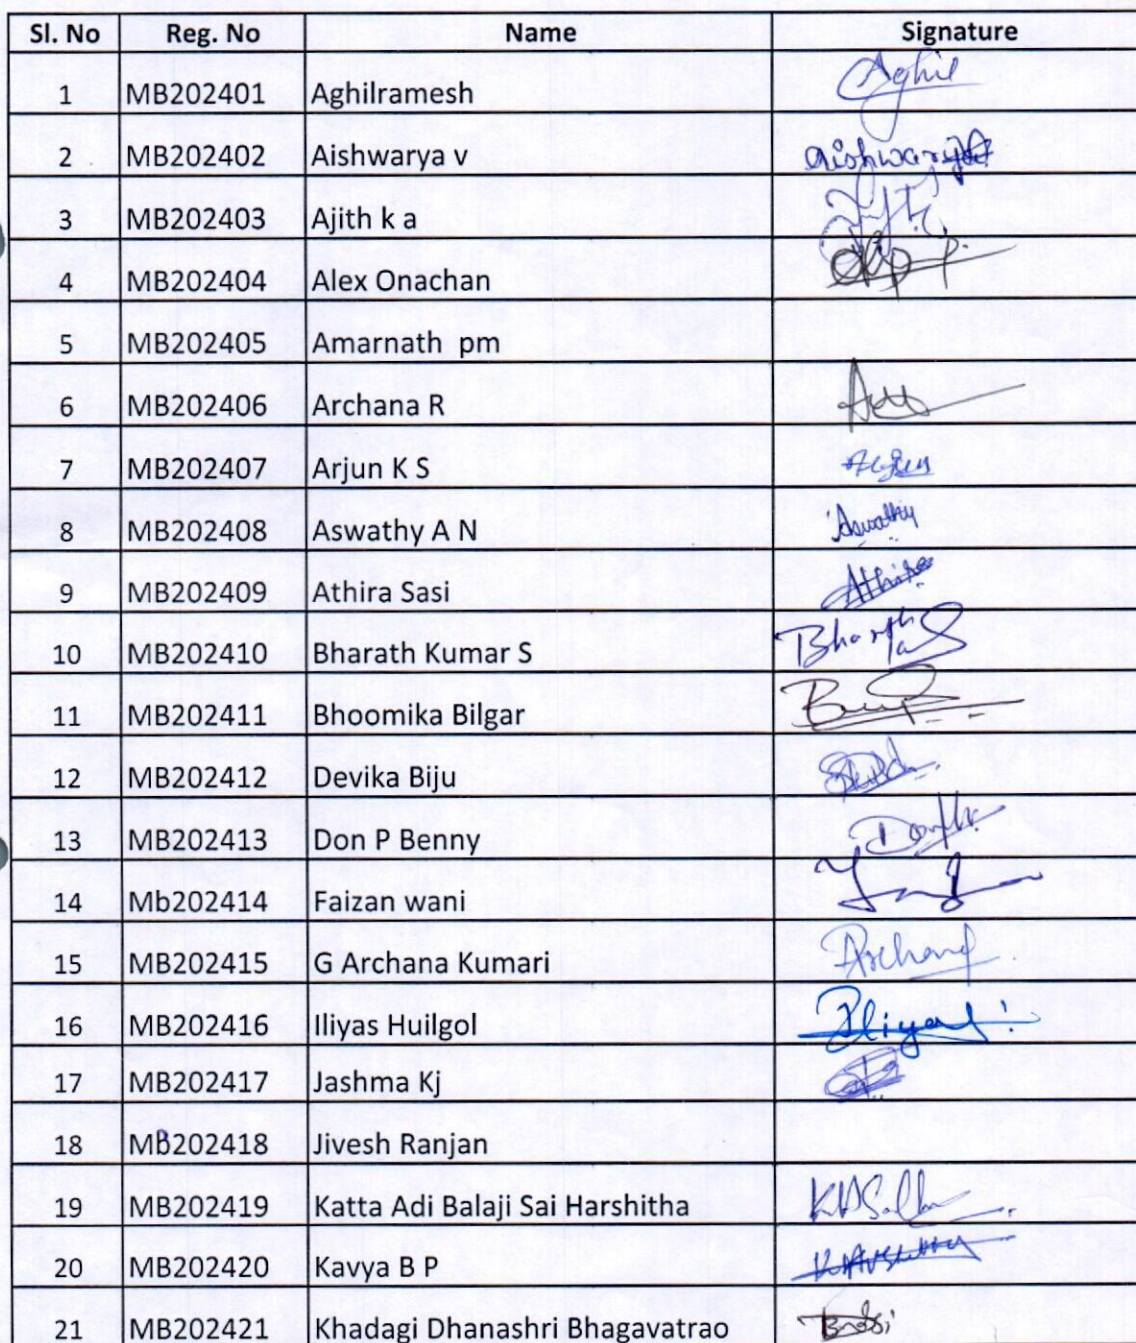 Sl. No Reg. No Name Signature
1 MB202401 Aghilramesh Aghil
2 MB202402 Aishwarya v aishwarya
3 MB202403 Ajith k a
4 MB202404 Alex Onachan
5 MB202405 Amarnath pm
6 MB202406 Archana R
7 MB202407 Arjun K S Arjun
8 MB202408 Aswathy A N Aswathy
9 MB202409 Athira Sasi Athira
10 MB202410 Bharath Kumar S Bharath
11 MB202411 Bhoomika Bilgar
12 MB202412 Devika Biju
13 MB202413 Don P Benny
14 Mb202414 Faizan wani
15 MB202415 G Archana Kumari Archana
16 MB202416 Iliyas Huilgol Iliyas
17 MB202417 Jashma Kj
18 MB202418 Jivesh Ranjan
19 MB202419 Katta Adi Balaji Sai Harshitha
20 MB202420 Kavya B P
21 MB202421 Khadagi Dhanashri Bhagavatrao